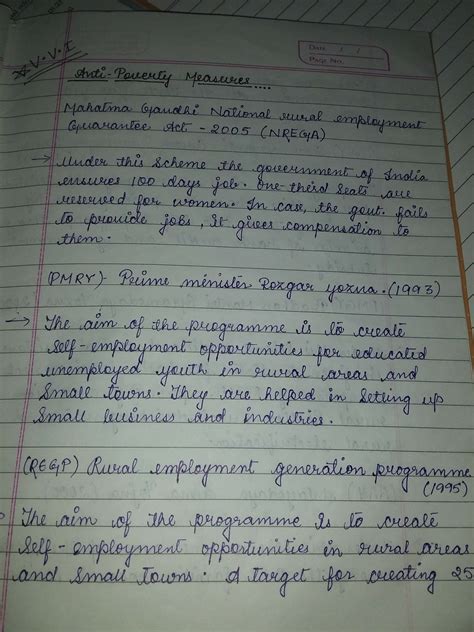 V.V.I
Date / /
Page No.
Anti-Poverty Measures....
Mahatma Gandhi National rural employment
Guarantee Act - 2005 (NREGA)
→ Under this Scheme the government of India
ensures 100 days job. One third Seats are
reserved for women. In case, the govt. fails
to provide jobs, it gives compensation to
them.
(PMRY)- Prime minister Rozgar yozna.(1993)
→ The aim of the programme is to create
Self-employment opportunities for educated
unemployed youth in rural areas and
Small towns. They are helped in Setting up
Small business and industries.
(REGP) Rural employment generation programme
(1995)
The aim of the programme is to create
Self-employment opportunities in rural areas
and Small towns. A target for creating 25